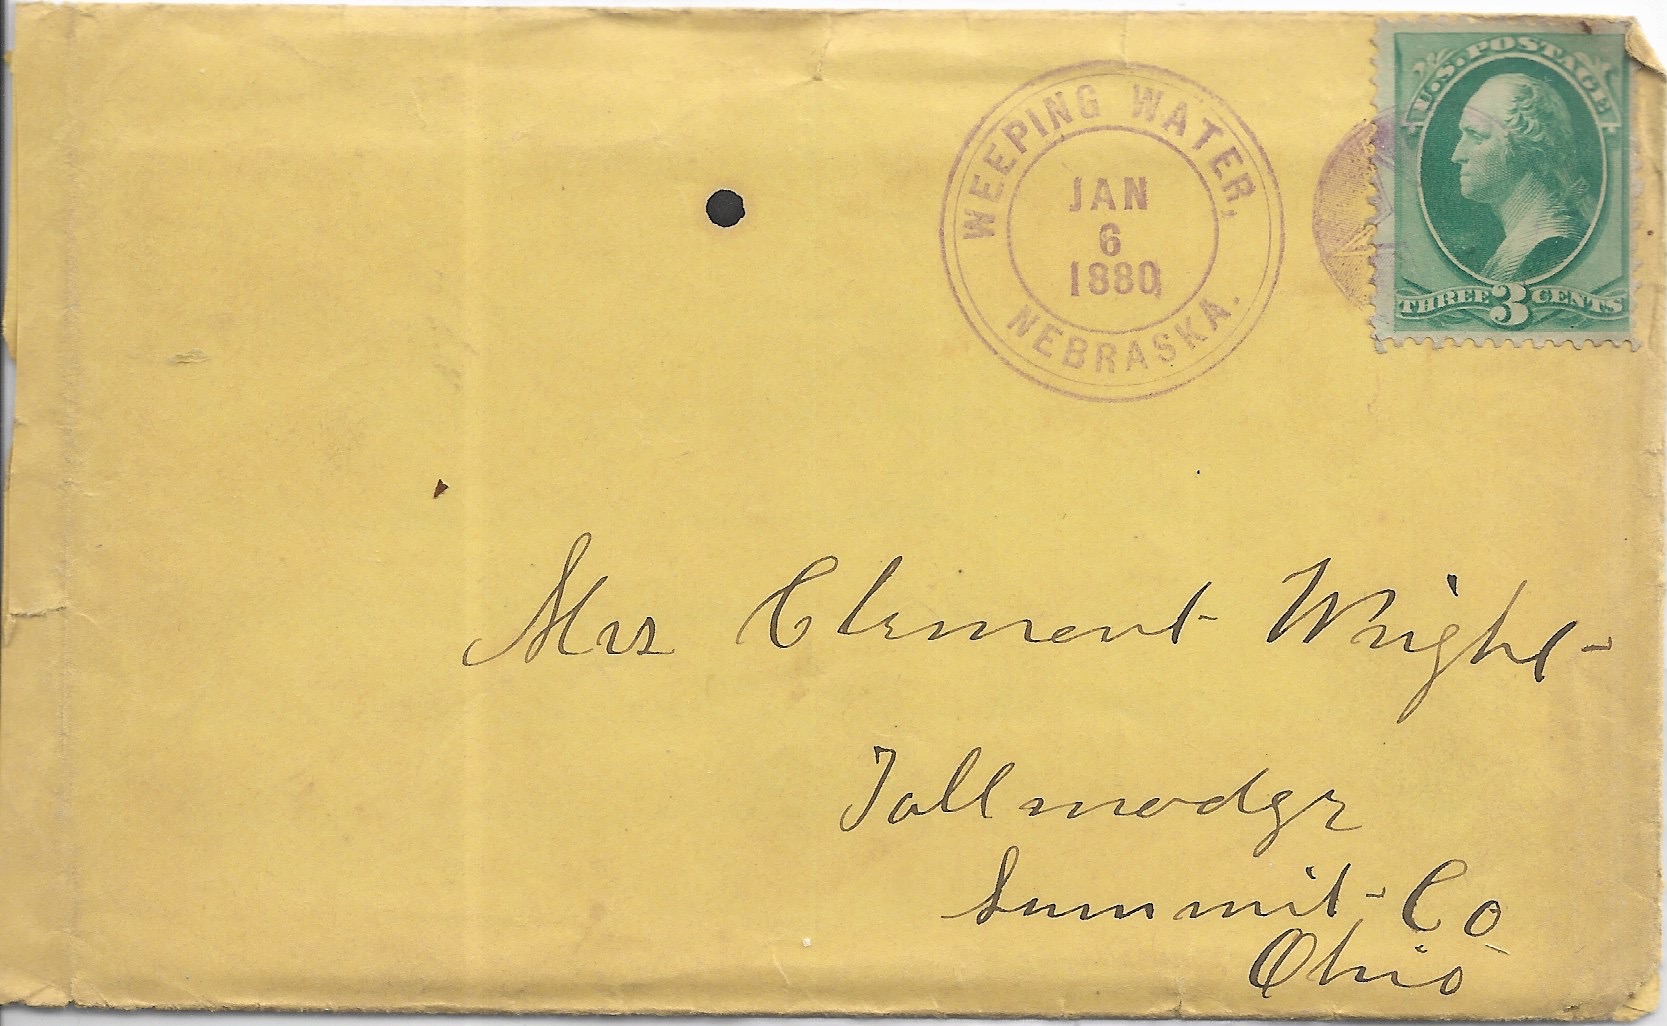 U.S. POSTAGE
THREE 3 CENTS
WEEPING WATER,
JAN
6
1880
NEBRASKA.
Mrs Clement Wright
Tallmadge
Summit Co
Ohio